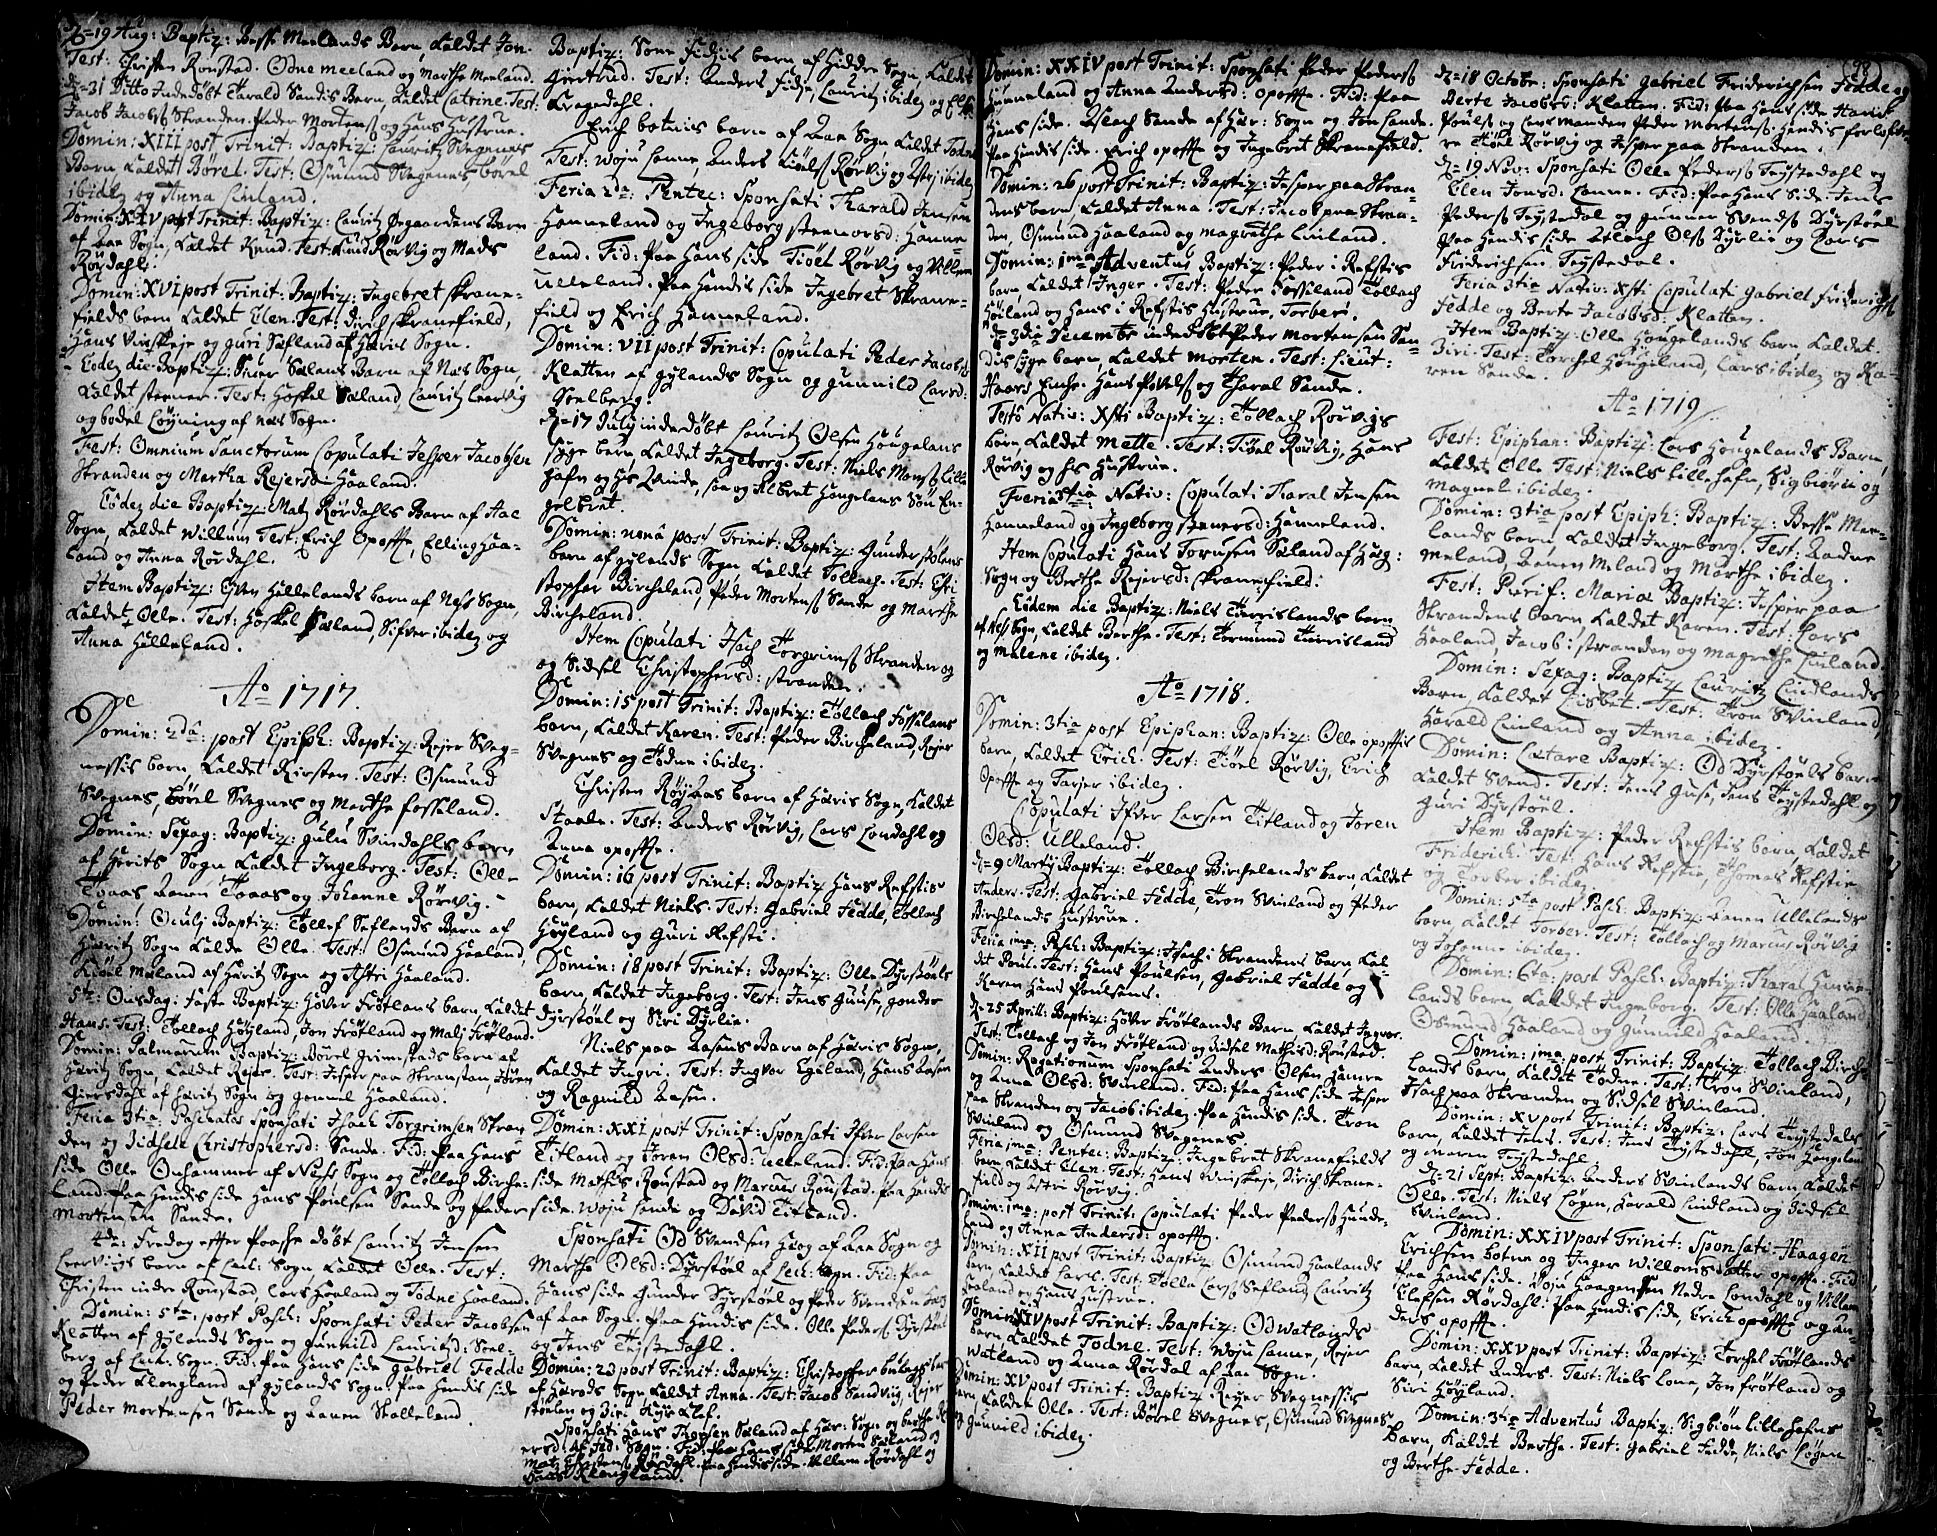 d= 19 Aug: Baptiz: Besse Meelands Barn, kaldet Jon.
Test: Christen Ronstad. Odne meeland og Marthe Meeland.
d= 31 Ditto Inderdöbt Harald Sandis Barn, kaldet Catrine. Test:
Jacob Jacobss Stranden. Peder Mortenss og Hans Hustrue.
Domin: XIII post Trinit: Baptiz: Lauritz Svegnes
Barn, kaldet Börel. Test: Osmund Svegenes, börel
ibidem og Anna Linland.
Domin: XIV post Trinit: Baptiz: Lauritz Öegaardens Barn
af Qua Sogn, kaldet Knud. Test: Knud Rörvig og Mads
Rördahl.
Domin: XVI post Trinit: Baptiz: Ingebret skrane-
fields barn kaldet Elen. Test: Dirich skranefield,
Hans Vinskeje og guri Sæfland af Hæris Sogn.
Eodem die Baptiz: Siver Sælans Barn af Næs Sogn,
kaldet steener. Test: Hoskel Sæland, Lauritz leervig
og bodel Löyning af næs Sogn.
Fest: Omnium Sanctorum Copulati Jesper Jacobsen
Stranden og Martha Rejersd: Haaland.
Eodem die Baptiz: Matz Rördahls Barn af Aae
Sogn, kaldet Willum. Test: Erich Opoffte, Elling Haa-
land og Anna Rördahl.
Item Baptiz: Even Hellelands barn af Ness Sogn,
kaldet Olle. Test: Hoskel Sæland, Sifver ibidem og
Anna Helleland.
Ao 1717.
Domin: 2da: post Epiph: Baptiz: Rejer Sveg-
nessis barn, kaldet Kirsten. Test: Osmund
Svegnes, börel Svegnes og Marthe fosseland.
Domin: Sexag: Baptiz: gulu Svindahls barn
af Herits Sogn kaldet Ingeborg. Test: Olle
Toaas, Aanen Toaas og Johanne Rörvig.
Domin: Oculj Baptiz: Tollef Seflands Barn af
Hæritz Sogn kaldet Olle. Test: Osmund Haaland,
Kiöel Mæland af Häritz Sogn og Astri Haaland.
5te: Onsdag: Faste Baptiz: Höver Frötlans barn kaldet
Hans. Test: Tollach Höyland, Jon Frötland og Malj Frötland.
Domin: Palmarum Baptiz: Börel Grimstads barn af
Häritz Sogn kaldet Rejer. Test: Jesper paa Stranden, Jören
Giersdahl af Häritz Sogn og gemul Haaland.
Feria 3tia Paschatos Sponsati Isach Torgrimsen Stran
den og Zidsele Christophersd: Sande. Fid: paa Hans
side Olle Omhammer af Ness Sogn og Tollach Birche-
land. paa Hendis side Hans Poulsen Sande og Peder
Mortensen Sande.
4de: Fredag effter Paasche döbt Lauritz Jensen
Leervigs barn af Leck: Sogn kaldet Olle. Test:
Christen indre Ronstad, Lars Haaland og Todne Haaland.
Domin: 5ta, post Pasch: Sponsati Peder Jacobsen
Klatten af gylands Sogn og gunnild Lauritzd: Soel-
berg af Leck: Sogn. Fid: paa Hans side gabriel Fedde
og Peder Klongland af gylands Sogn. paa Hendis side
Peder Mortensen Sande og Aanen Skolleland.
Baptiz: Sone Fidjis barn af Hidder Sogn, kaldet
Giertrud. Test: Anders Fidje, Lauritz ibidem og Else
Tregedahl.
Erich botnis barn af Qua Sogn kaldet Todne
Test: Woju Lanne, Anders Kiöls Rörvig og Astrj ibidem
Feria 2da: Pentec: Sponsati Tharald Jensen
Hanneland og Ingeborg steenersd: Hanne-
land. Fid: paa Hans side Tiöel Rörvig og Villem
Ulleland. paa Hendis side Ingebret Skrane-
field og Erich Hanneland.
Domin: VII post Trinit: Copulati Peder Jacobss
Klatten af gylands Sogn og gunnild Larsd:
Soelberg.
d= 17 July inderdöbt Lauritz Olsen Hougelans
syge barn, kaldet Ingeborg. Test: Niels Monss lille
hafn og Hs Qvinde, saa og Albret Hougelans Sön En-
gelbret.
Domin: nonâ post Trinit: Baptiz: Gunder stölens
barn af gylands Sogn kaldet Tollach. Test: Chri
stopher Bircheland, Peder Mortenss Sande og Marthe
Bircheland.
Item Copulati Isach Torgrimss Stranden og
og Sidsel Christophersd: stranden.
Domin: 15 post Trinit: Baptiz: Tollach Fosselans
barn, kaldet Karen. Test: Peder Bircheland, Rejer
Svegnes og Todne ibidem.
Christen Röyaas barn af Häris Sogn, kaldet
Staale. Test: Anders Rörvig, Lars Londahl og
Anna opoffte.
Domin: 16 post Trinit: Baptiz: Hans Refstis
barn, kaldet Niels. Test: Gabriel Fedde, Tollach
Höyland og Guri Refsti.
Domin: 18 post Trinit: Baptiz: Olle Dyrstöels
barn, kaldet Ingeborg. Test: Jens Guuse, gonder
dyrstöel og Siri Dyrlie.
Niels paa Aasens Barn af Häris Sogn,
kaldet Ingri. Test: Ingvor Egeland, Hans Aasen
og Ragnild Aasen.
Domin: XXI post Trinit: Sponsati Ifver Larsen
Titland og Joren Olsd: Ulleland. Fid: paa Hans
side Mathis Ronstad og Marcus Ronstad. paa Hendis
side. Woju Sande og David Titland.
Sponsati Od Svendsen Houg af Qua Sogn og
Marthe Olsd: Dyrstöel af Leck: Sogn. Fid: paa
Hans side Gunder Dyrstöel og Peder Svendsen Houg
af Qua Sogn. paa Hendis side. Olle Pederss Dyrstöel
og Jens Teystedahl.
Domin: 23 post Trinit: Baptiz: Christopher barn
af Härads Sogn kaldet Anna. Test: Jacob Sandvig, Rejer
stöelen og Ziri.
Sponsati Hans Thorsen Sæland af Här: Sogn og berthe Re
ersd: af Fed: Sogn. Fid: paa Hans side Morten Sæland og
Matz Christenss Rördahl. paa Hendis side. Villem Rördahl og
Lars Klongland.
Domin: XXIV post Trinit: Sponsati Peder Pederss
Hunneland og Anna Andersd: opoffte. Fid: paa
Hans side. Aslach Sande af Här: Sogn og Jon Sande.
Paa Hendis side. Erich opoffte og Ingebret Skranefield.
Domin: 26 post Trinit: Baptiz: Jesper paa Stran
dens barn, kaldet Anna. Test: Jacob paa Stran-
den, Osmund Haaland og magrethe Linland.
Domin: 1ma Adventus Baptiz: Peder i Refstis
barn, kaldet Inger. Test: Peder Fosseland Tollach
Höiland og Hans i Refstis Hustrue, Torber.
d= 3die Decembr inderdöbt Peder Mortensen San-
dis syge barn, kaldet Morten. Test: Lieut:
Haars Enche. Hans Povelss og Tharal Sande.
Festo Nativ: Xsti Baptiz: Tollach Rörvigs
barn, kaldet Mette. Test: Tiöel Rörvig, Hans
Rörvig og Hs Hustrue.
Feria 3tia Nativ: Copulati Tharal Jensen
Hanneland og Ingeborg stenersd: Hanneland.
Item Copulati Hans Torusen Sæland af Här:
Sogn og Berthe Rejersd: Skranefield:
Eodem die Baptiz: Niels Terrislands barn
af Ness Sogn, kaldet Berthe. Test: Tormund Terrisland
og Malene ibidem.
Ao 1718.
Domin: 3tia post Epiphan: Baptiz: Olle opofftis
barn, kaldet Erich. Test: Tiöel Rörvig, Erich
Opoffte og Tarjer ibidem.
Copulati Ifver Larsen Titland og Joren
Olsd: Ulleland.
d= 9 Martij Baptiz: Tollach Birchelands barn, kaldet
Anders. Test: Gabriel Fedde, Tron Svinland og Peder
Birchelands Hustrue.
Feria 1ma: Pasch: Baptiz: Isach i Strandens barn, kal-
det Poul. Test: Hans Poulsen, Gabriel Fedde og
Karen Hans Poulsens.
d= 25 Aprill: Baptiz: Höver Frötlands Barn kaldet Ingvor.
Test: Tollach og Jon Frötland og Zidsel Mathisd: Ronstad.
Domin: Rogationum Sponsati Anders Olsen Hamre
og Anna Olsd: Svinland. Fid: paa Hans side Jesper
paa Stranden og Jacob ibidem. Paa Hendis side. Tron
Svinland og Osmund Svegenes.
Feria 1ma: Pentec: Baptiz: Ingebret Skranefields
barn kaldet Elen. Test: Hans Winskeje, Dirich Skrane-
field og Astri Rörvig.
Domin: 1ma: post Trinit: Copulati Peder Pederss Hunde-
land og Anna Andersd: opoffte.
Domin: XII post Trinit: Baptiz: Osmund Haalands
barn kaldet Lars. Test: Tolle Larss Sefland, Lauritz
Haaland og Hans Hustrue.
Domin: XIV post Trinit: Baptiz: Od Watlands
barn kaldet Todne. Test: Woju Lanne, Rejer
Watland og Anna Rördal af Qua Sogn.
Domin: XV post Trinit: Baptiz: Rejer Svegnessis
barn, kaldet Olle. Test: Börel Svegnes, Osmund Svegnes
og gunnild ibidem.
(98)
d= 18 Octobr: Sponsati Gabriel Friderichsen Fedde og
Berte Jacobsd: Klatten. Fid: paa Hans side Hans
Poulss og Lensmanden Peder Mortenss. Hendis forlofve-
re Tiöel Rörvig og Jesper paa Stranden.
d= 19 Nov: Sponsati Olle Pederss Teystedahl og
Elen Jensd: Lanne. Fid: paa Hans Side. Jens
Pederss Teystedal og gunner Svends Dyrstöel
paa Hendis side Aslach Olss Dyrlie og Lars
Friderichsen Teystedal.
Feria 3tia Nativ: Xsti Copulati Gabriel Friderichss
Fedde og Berte Jacobsd: Klatten.
Item Baptiz: Olle Hougelands barn kaldet
Ziri. Test: Torchel Hougeland, Lars ibidem og Ka-
ren Sande.
Ao 1719
Fest: Epiphan: Baptiz: Lars Hougelands Barn
kaldet, Olle. Test: Niels lillehafn, Sigbiörn og
Magnel ibidem.
Domin: 3tia post Epiph: Baptiz: Besse Mee-
lands barn kaldet Ingeborg. Test: Aadne
Meeland, Aanen Meland og Marthe ibidem.
Fest: Purif: Mariæ Baptiz: Jesper paa
Strandens barn, kaldet Karen. Test: Lars
Haaland, Jacob i stranden og Magrethe Linland.
Domin: Sexag: Baptiz: Lauritz Lindlands
Barn, kaldet Lisbet. Test: Tron Svinland,
Harald Linland og Anna ibidem.
Domin: Lætare Baptiz: Od Dyrstöels barn
kaldet Svend. Test: Jens Guse, Jens Teystedahl og
Guri Dyrstöel.
Item Baptiz: Peder Refstis barn, kaldet
Friderich. Test: Hans Refstie, Thomas Refstie
og Torber ibidem.
Domin: 5ta post Pasch: Baptiz: Aanen Ullelands
barn, kaldet Torber. Test: Tollach og Marcus Rörvig
og Johanne ibidem.
Domin: 6ta: post Pasch: Baptiz: Tharal Hanne-
lands barn, kaldet Ingeborg. Test: Olle Haaland,
Osmund Haaland og Gunnild Haaland.
Domin: 1ma: post Trinit: Baptiz: Tollach Birche
lands barn, kaldet Todne. Test: Tron Svinland,
Isach paa Stranden og Sidsel Svinland.
Domin: XV post Trinit: Baptiz: Lars Teystedals
barn, kaldet Jens. Test: Jens Teystedahl, Jon Hougeland
og Maren Teystedahl.
d= 21 Sept: Baptiz: Anders Svinlands barn kaldet
Olle. Test: Niels Lögen, Harald Lindland og Zidsel
Svinland.
Domin: XXIV post Trinit: Sponsati Haagen
Erichsen botne og Inger Willoms datter opoffte. Fid:
paa Hans side. Woju Haagensen Nedre Londahl og Villem
Elefsen Rördahl: paa Hendis side, Erich opoffte og An-
ders opoffte.
Domin: XXV post Trinit: Baptiz: Torchel Frötlands
barn, kaldet Anders. Test: Niels Lone, Jon Frötland og
Siri Höyland.
Domin: 3tia Adventus Baptiz: Sigbiön lillehafns
barn, kaldet Berthe. Test: Gabriel Fedde, Niels Lögen
og Berthe Fedde.